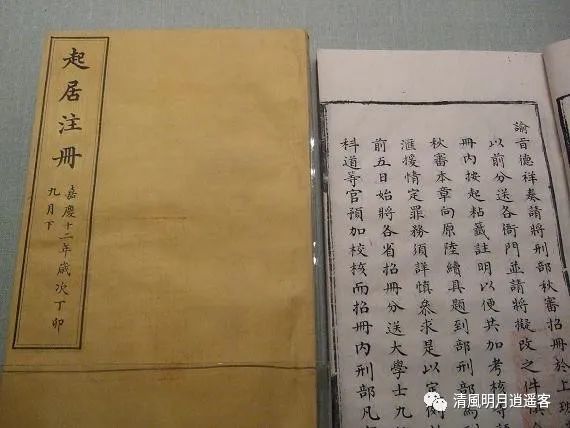 起居注冊
嘉慶十二年歲次丁卯
九月下
諭音德祥奏請將刑部秋審招冊於上班
以前分送各衙門並請將擬改之件
冊內按起粘籤註明以便共加考核
秋審本章向原陸續具題到部刑部
滙援情定罪務須詳慎叅求是以定例
前五日始將各省招冊分送大學士九
科道等官預加校核而招冊內刑部凡
清風明月逍遥客